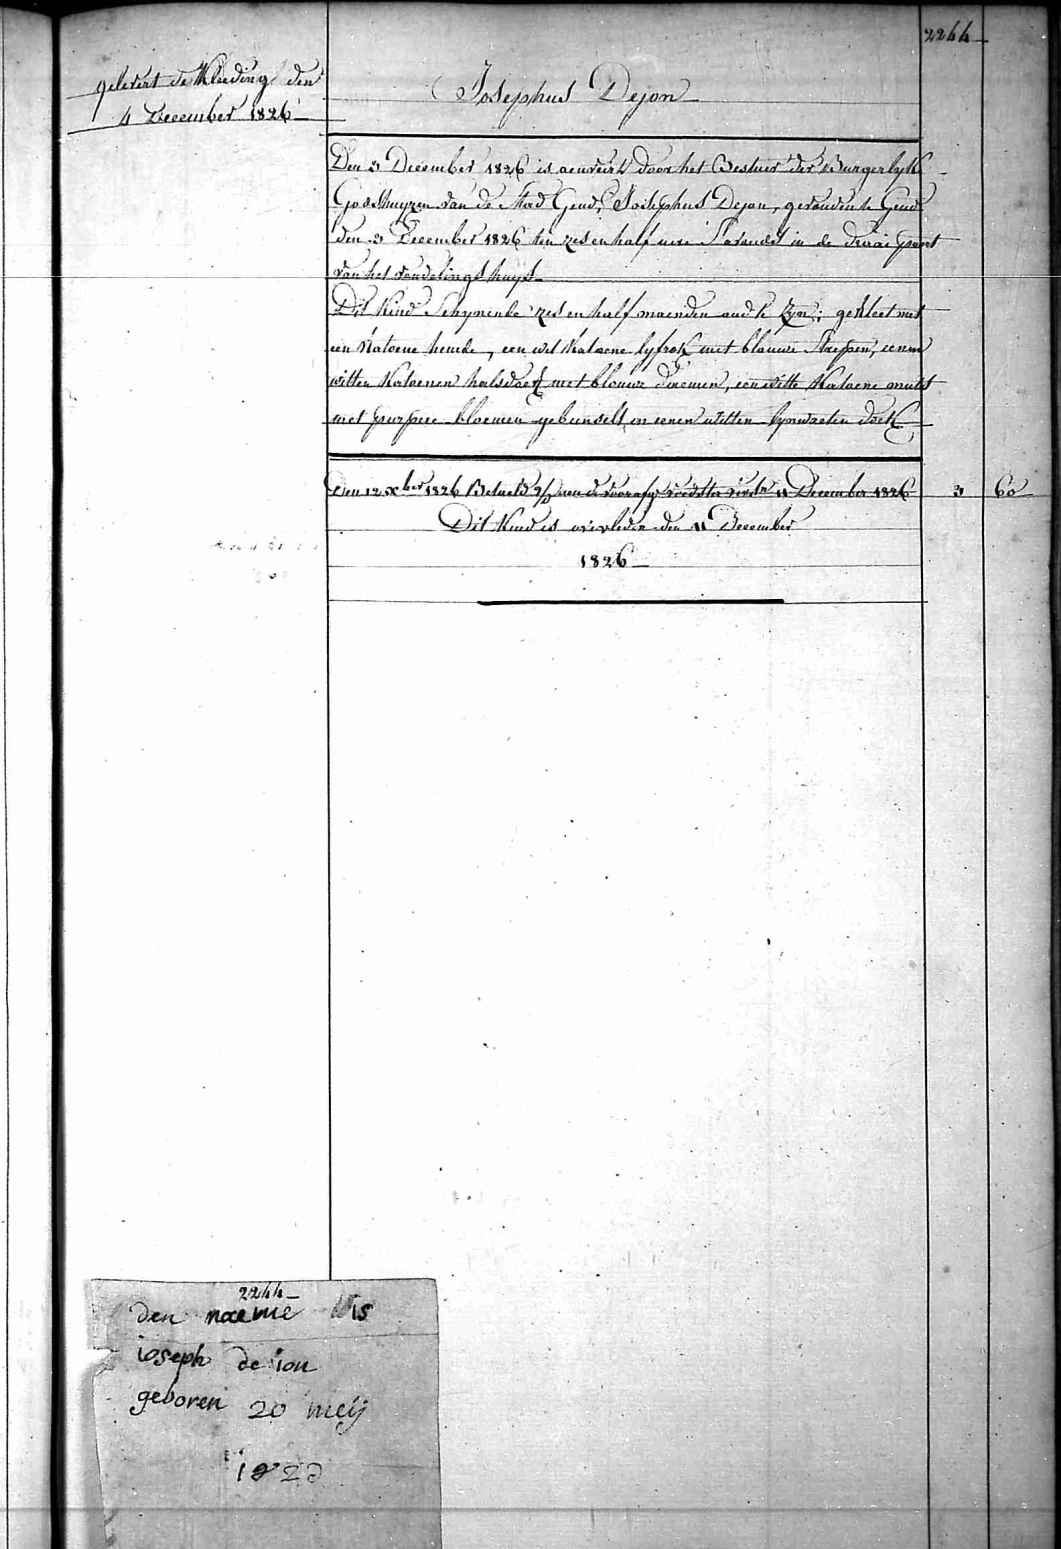 2244
gelevert de Kleeding den
4 December 1826
Josephus Dejon
Den 3 December 1826 is aenveirt door het Bestuer der Burgerlyke
Godshuyzen van de Stad Gend, Josephus Dejon, gevonden te Gend
den 3 December 1826 ten zes en half ure 's avonds in de draai poort
van het vondelings huys
Dit Kind Schynende zes en half maenden oud te Zyn; gekleet met
een Katoene hemde, een wit Katoene lyfrok met blauwe Streepen, eenen
witten Katoenen halsdoek met blauwe bloemen, een witte Katoene muts
met purpere bloemen gebunselt in eenen witten lynwaeten doek
Den 12 Xber 1826 Betaelt aen de voorafg voedster 11 December 1826
3 60
Dit Kind is overleden den 11 December
1826
2244
den naeme is
ioseph de ion
geboren 20 meij